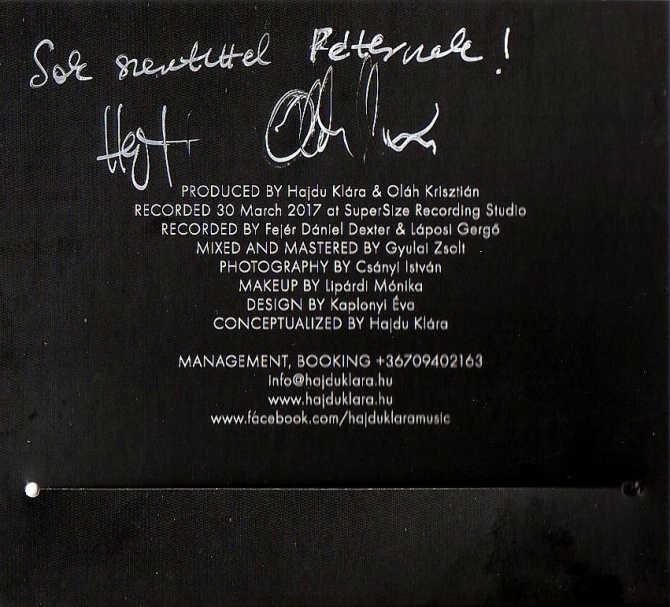 Sok szeretettel Péternek!
PRODUCED BY Hajdu Klára & Oláh Krisztián
RECORDED 30 March 2017 at SuperSize Recording Studio
RECORDED BY Fejér Dániel Dexter & Láposi Gergő
MIXED AND MASTERED BY Gyulai Zsolt
PHOTOGRAPHY BY Csányi István
MAKEUP BY Lipárdi Mónika
DESIGN BY Kaplonyi Éva
CONCEPTUALIZED BY Hajdu Klára
MANAGEMENT, BOOKING +36709402163
info@hajduklara.hu
www.hajduklara.hu
www.facebook.com/hajduklaramusic